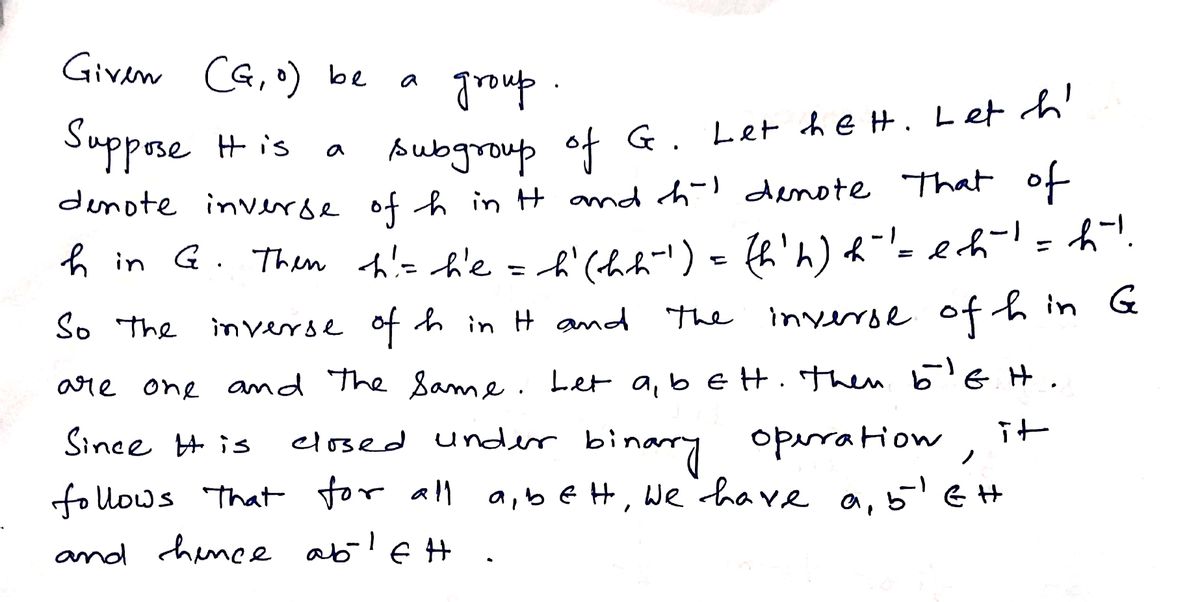 Given (G, o) be a group.
Suppose H is a subgroup of G. Let h ∈ H. Let h'
denote inverse of h in H and h⁻¹ denote That of
h in G. Then h' = h'e = h'(hh⁻¹) = (h'h) h⁻¹ = eh⁻¹ = h⁻¹.
So The inverse of h in H and The inverse of h in G
are one and The Same. Let a, b ∈ H. Then b⁻¹ ∈ H.
Since H is closed under binary operation, it
follows That for all a, b ∈ H, We have a, b⁻¹ ∈ H
and hence ab⁻¹ ∈ H.